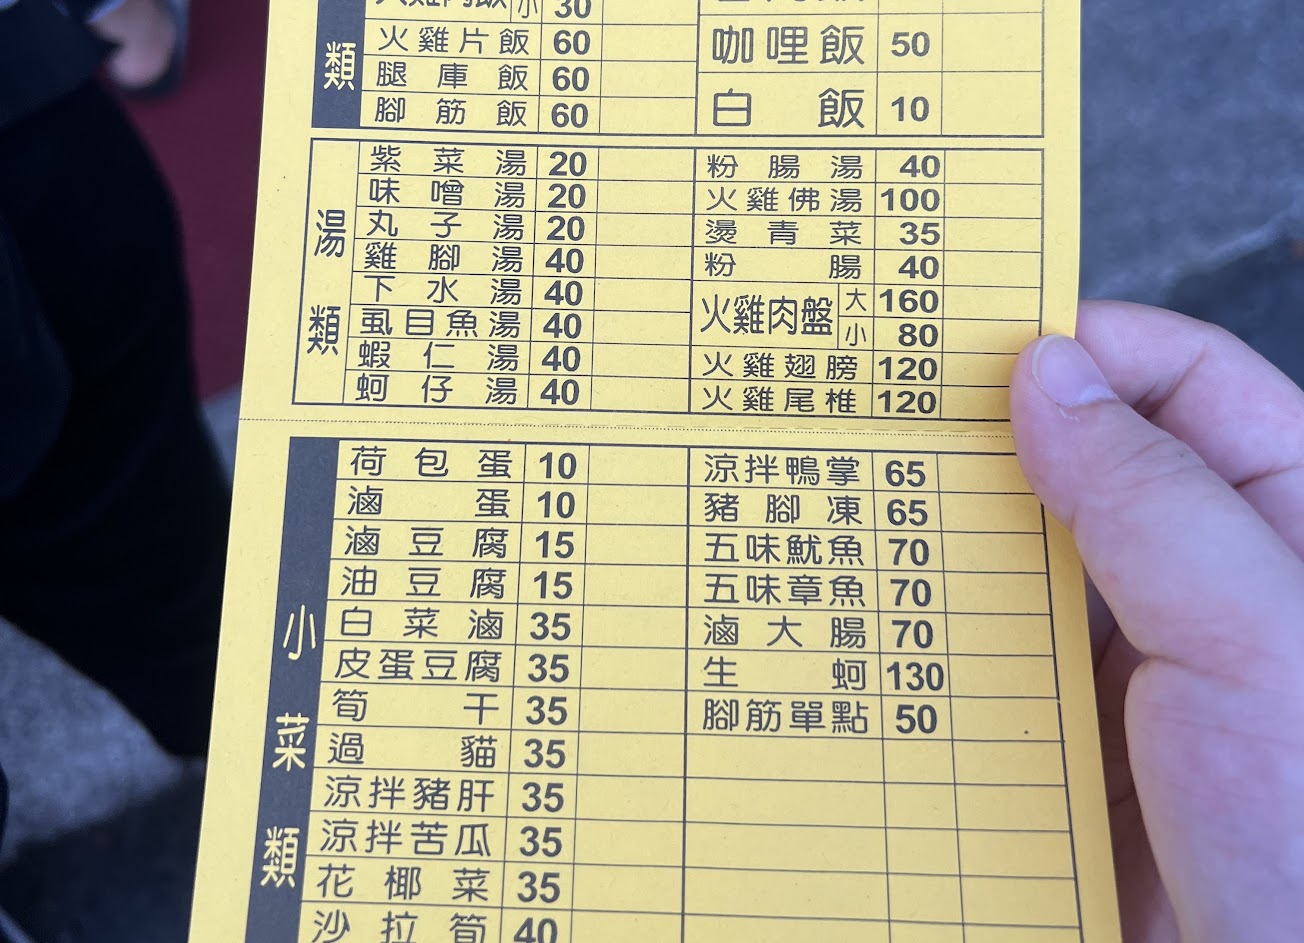 類
火雞片飯 60
腿庫飯 60
腳筋飯 60
咖哩飯 50
白飯 10
湯類
紫菜湯 20
味噌湯 20
丸子湯 20
雞腳湯 40
下水湯 40
虱目魚湯 40
蝦仁湯 40
蚵仔湯 40
粉腸湯 40
火雞佛湯 100
燙青菜 35
粉腸 40
火雞肉盤 大 160
小 80
火雞翅膀 120
火雞尾椎 120
小菜類
荷包蛋 10
滷蛋 10
滷豆腐 15
油豆腐 15
白菜滷 35
皮蛋豆腐 35
筍干 35
過貓 35
涼拌豬肝 35
涼拌苦瓜 35
花椰菜 35
沙拉筍 40
涼拌鴨掌 65
豬腳凍 65
五味魷魚 70
五味章魚 70
滷大腸 70
生蚵 130
腳筋單點 50